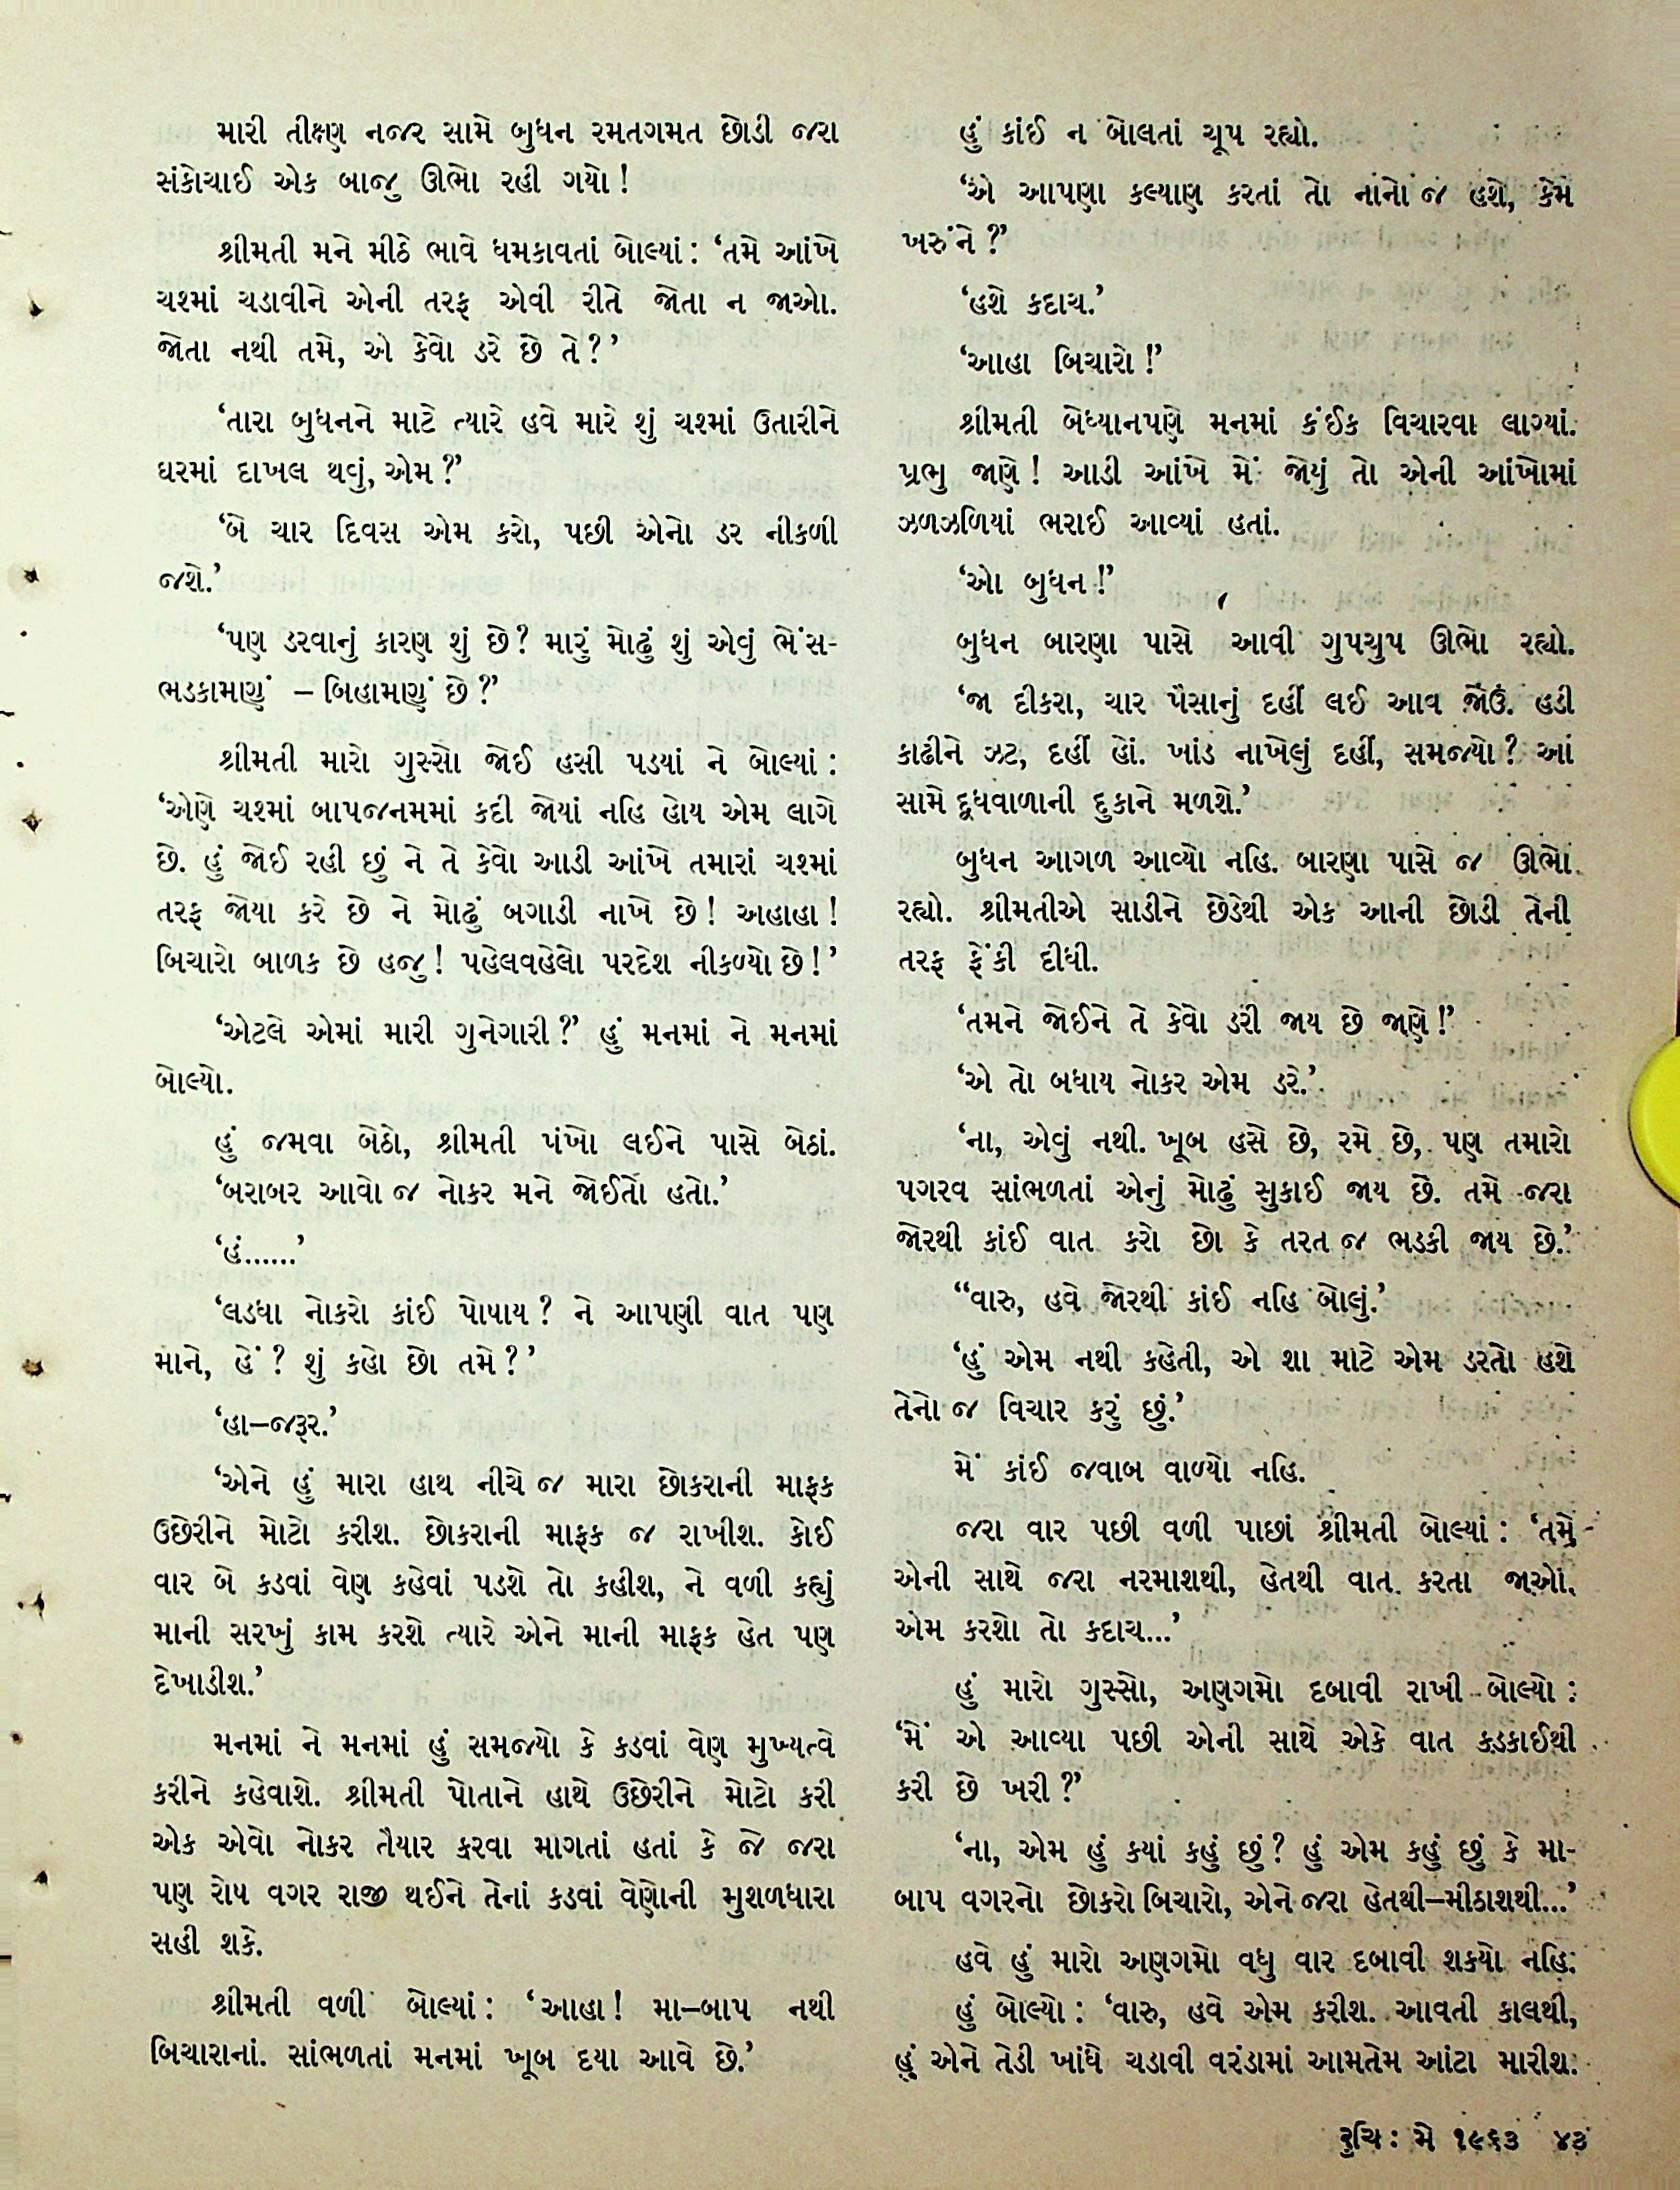 મારી તીક્ષ્ણ નજર સામે બુધન રમતગમત છોડી જરા
સંકોચાઈ એક બાજુ ઊભો રહી ગયો !
શ્રીમતી મને મીઠે ભાવે ધમકાવતાં બોલ્યાં : ‘તમે આંખે
ચશ્માં ચડાવીને એની તરફ એવી રીતે જોતા ન જાઓ.
જોતા નથી તમે, એ કેવો ડરે છે તે ? ’
‘તારા બુધનને માટે ત્યારે હવે મારે શું ચશ્માં ઉતારીને
ઘરમાં દાખલ થવું, એમ ?’
‘બે ચાર દિવસ એમ કરો, પછી એનો ડર નીકળી
જશે.’
‘પણ ડરવાનું કારણ શું છે ? મારું મોઢું શું એવું ભેંસ-
ભડકામણું – બિહામણું છે ?’
શ્રીમતી મારો ગુસ્સો જોઈ હસી પડયાં ને બોલ્યાં :
‘એણે ચશ્માં બાપજનમમાં કદી જોયાં નહિ હોય એમ લાગે
છે. હું જોઈ રહી છું ને તે કેવો આડી આંખે તમારાં ચશ્માં
તરફ જોયા કરે છે ને મોઢું બગાડી નાખે છે ! અહાહા !
બિચારો બાળક છે હજુ ! પહેલવહેલો પરદેશ નીકળ્યો છે ! ’
‘એટલે એમાં મારી ગુનેગારી ?’ હું મનમાં ને મનમાં
બોલ્યો.
હું જમવા બેઠો, શ્રીમતી પંખો લઈને પાસે બેઠાં.
‘બરાબર આવો જ નોકર મને જોઈતો હતો.’
‘હં......’
‘લડધા નોકરો કાંઈ પોષાય ? ને આપણી વાત પણ
માને, હેં ? શું કહો છો તમે ? ’
‘હા–જરૂર.’
‘એને હું મારા હાથ નીચે જ મારા છોકરાની માફક
ઉછેરીને મોટો કરીશ. છોકરાની માફક જ રાખીશ. કોઈ
વાર બે કડવાં વેણ કહેવાં પડશે તો કહીશ, ને વળી કહ્યું
માની સરખું કામ કરશે ત્યારે એને માની માફક હેત પણ
દેખાડીશ.’
મનમાં ને મનમાં હું સમજયો કે કડવાં વેણ મુખ્યત્વે
કરીને કહેવાશે. શ્રીમતી પોતાને હાથે ઉછેરીને મોટો કરી
એક એવો નોકર તૈયાર કરવા માગતાં હતાં કે જે જરા
પણ રોષ વગર રાજી થઈને તેનાં કડવાં વેણોની મુશળધારા
સહી શકે.
શ્રીમતી વળી બોલ્યાં : ‘આહા ! મા–બાપ નથી
બિચારાનાં. સાંભળતાં મનમાં ખૂબ દયા આવે છે.’
હું કાંઈ ન બોલતાં ચૂપ રહ્યો.
‘એ આપણા કલ્યાણ કરતાં તો નાનો જ હશે, કેમ
ખરુંને ?’
‘હશે કદાચ.’
‘આહા બિચારો !’
શ્રીમતી બેધ્યાનપણે મનમાં કંઈક વિચારવા લાગ્યાં.
પ્રભુ જાણે ! આડી આંખે મેં જોયું તો એની આંખોમાં
ઝળઝળિયાં ભરાઈ આવ્યાં હતાં.
‘ઓ બુધન !’
બુધન બારણા પાસે આવી ગુપચુપ ઊભો રહ્યો.
‘જા દીકરા, ચાર પૈસાનું દહીં લઈ આવ જોઉં. હડી
કાઢીને ઝટ, દહીં હોં. ખાંડ નાખેલું દહીં, સમજયો ? આ
સામે દૂધવાળાની દુકાને મળશે.’
બુધન આગળ આવ્યો નહિ. બારણા પાસે જ ઊભો
રહ્યો. શ્રીમતીએ સાડીને છેડેથી એક આની છોડી તેની
તરફ ફેંકી દીધી.
‘તમને જોઈને તે કેવો ડરી જાય છે જાણે !’
‘એ તો બધાય નોકર એમ ડરે.’
‘ના, એવું નથી. ખૂબ હસે છે, રમે છે, પણ તમારો
પગરવ સાંભળતાં એનું મોઢું સુકાઈ જાય છે. તમે જરા
જોરથી કાંઈ વાત કરો છો કે તરત જ ભડકી જાય છે.’
“વારુ, હવે જોરથી કાંઈ નહિ બોલું.’
‘હું એમ નથી કહેતી, એ શા માટે એમ ડરતો હશે
તેનો જ વિચાર કરું છું.’
મેં કાંઈ જવાબ વાળ્યો નહિ.
જરા વાર પછી વળી પાછાં શ્રીમતી બોલ્યાં : ‘તમે
એની સાથે જરા નરમાશથી, હેતથી વાત કરતા જાઓ.
એમ કરશો તો કદાચ...’
હું મારો ગુસ્સો, અણગમો દબાવી રાખી બોલ્યો :
‘મેં એ આવ્યા પછી એની સાથે એકે વાત કડકાઈથી
કરી છે ખરી ?’
‘ના, એમ હું કયાં કહું છું ? હું એમ કહું છું કે મા-
બાપ વગરનો છોકરો બિચારો, એને જરા હેતથી–મીઠાશથી...’
હવે હું મારો અણગમો વધુ વાર દબાવી શકયો નહિ.
હું બોલ્યો : ‘વારુ, હવે એમ કરીશ. આવતી કાલથી,
હું એને તેડી ખાંધે ચડાવી વરંડામાં આમતેમ આંટા મારીશ.
રુચિ : મે ૧૯૬૩ ૪૩